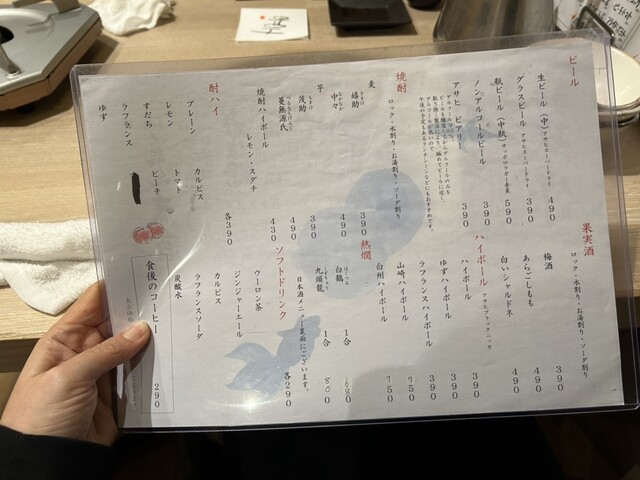 ビール
生ビール（中）アサヒスーパードライ 490
グラスビール アサヒスーパードライ 390
瓶ビール（中瓶）サッポロラガー赤星 590
ノンアルコールビール 390
アサヒ ビアリー 390
焼酎
ロック・水割り・お湯割り・ソーダ割り
麦
嬉助 390
中々 490
芋
茂助 390
蔓無源氏 490
焼酎ハイボール レモン・スダチ 430
酎ハイ
各390
プレーン
レモン
すだち
ラフランス
ゆず
カルピス
トマト
ピーチ
果実酒
ロック・水割り・お湯割り・ソーダ割り
梅酒 390
あらごしもも 490
白いシャルドネ 490
ハイボール アサヒブラックニッカ
ハイボール 390
ゆずハイボール 390
ラフランスハイボール 390
山崎ハイボール 950
白州ハイボール 750
熱燗
白鶴 1合
九頭龍 1合 800
日本酒メニュー裏面にございます。
ソフトドリンク
各290
ウーロン茶
ジンジャーエール
カルピス
ラフランスソーダ
炭酸水
食後のコーヒー 290